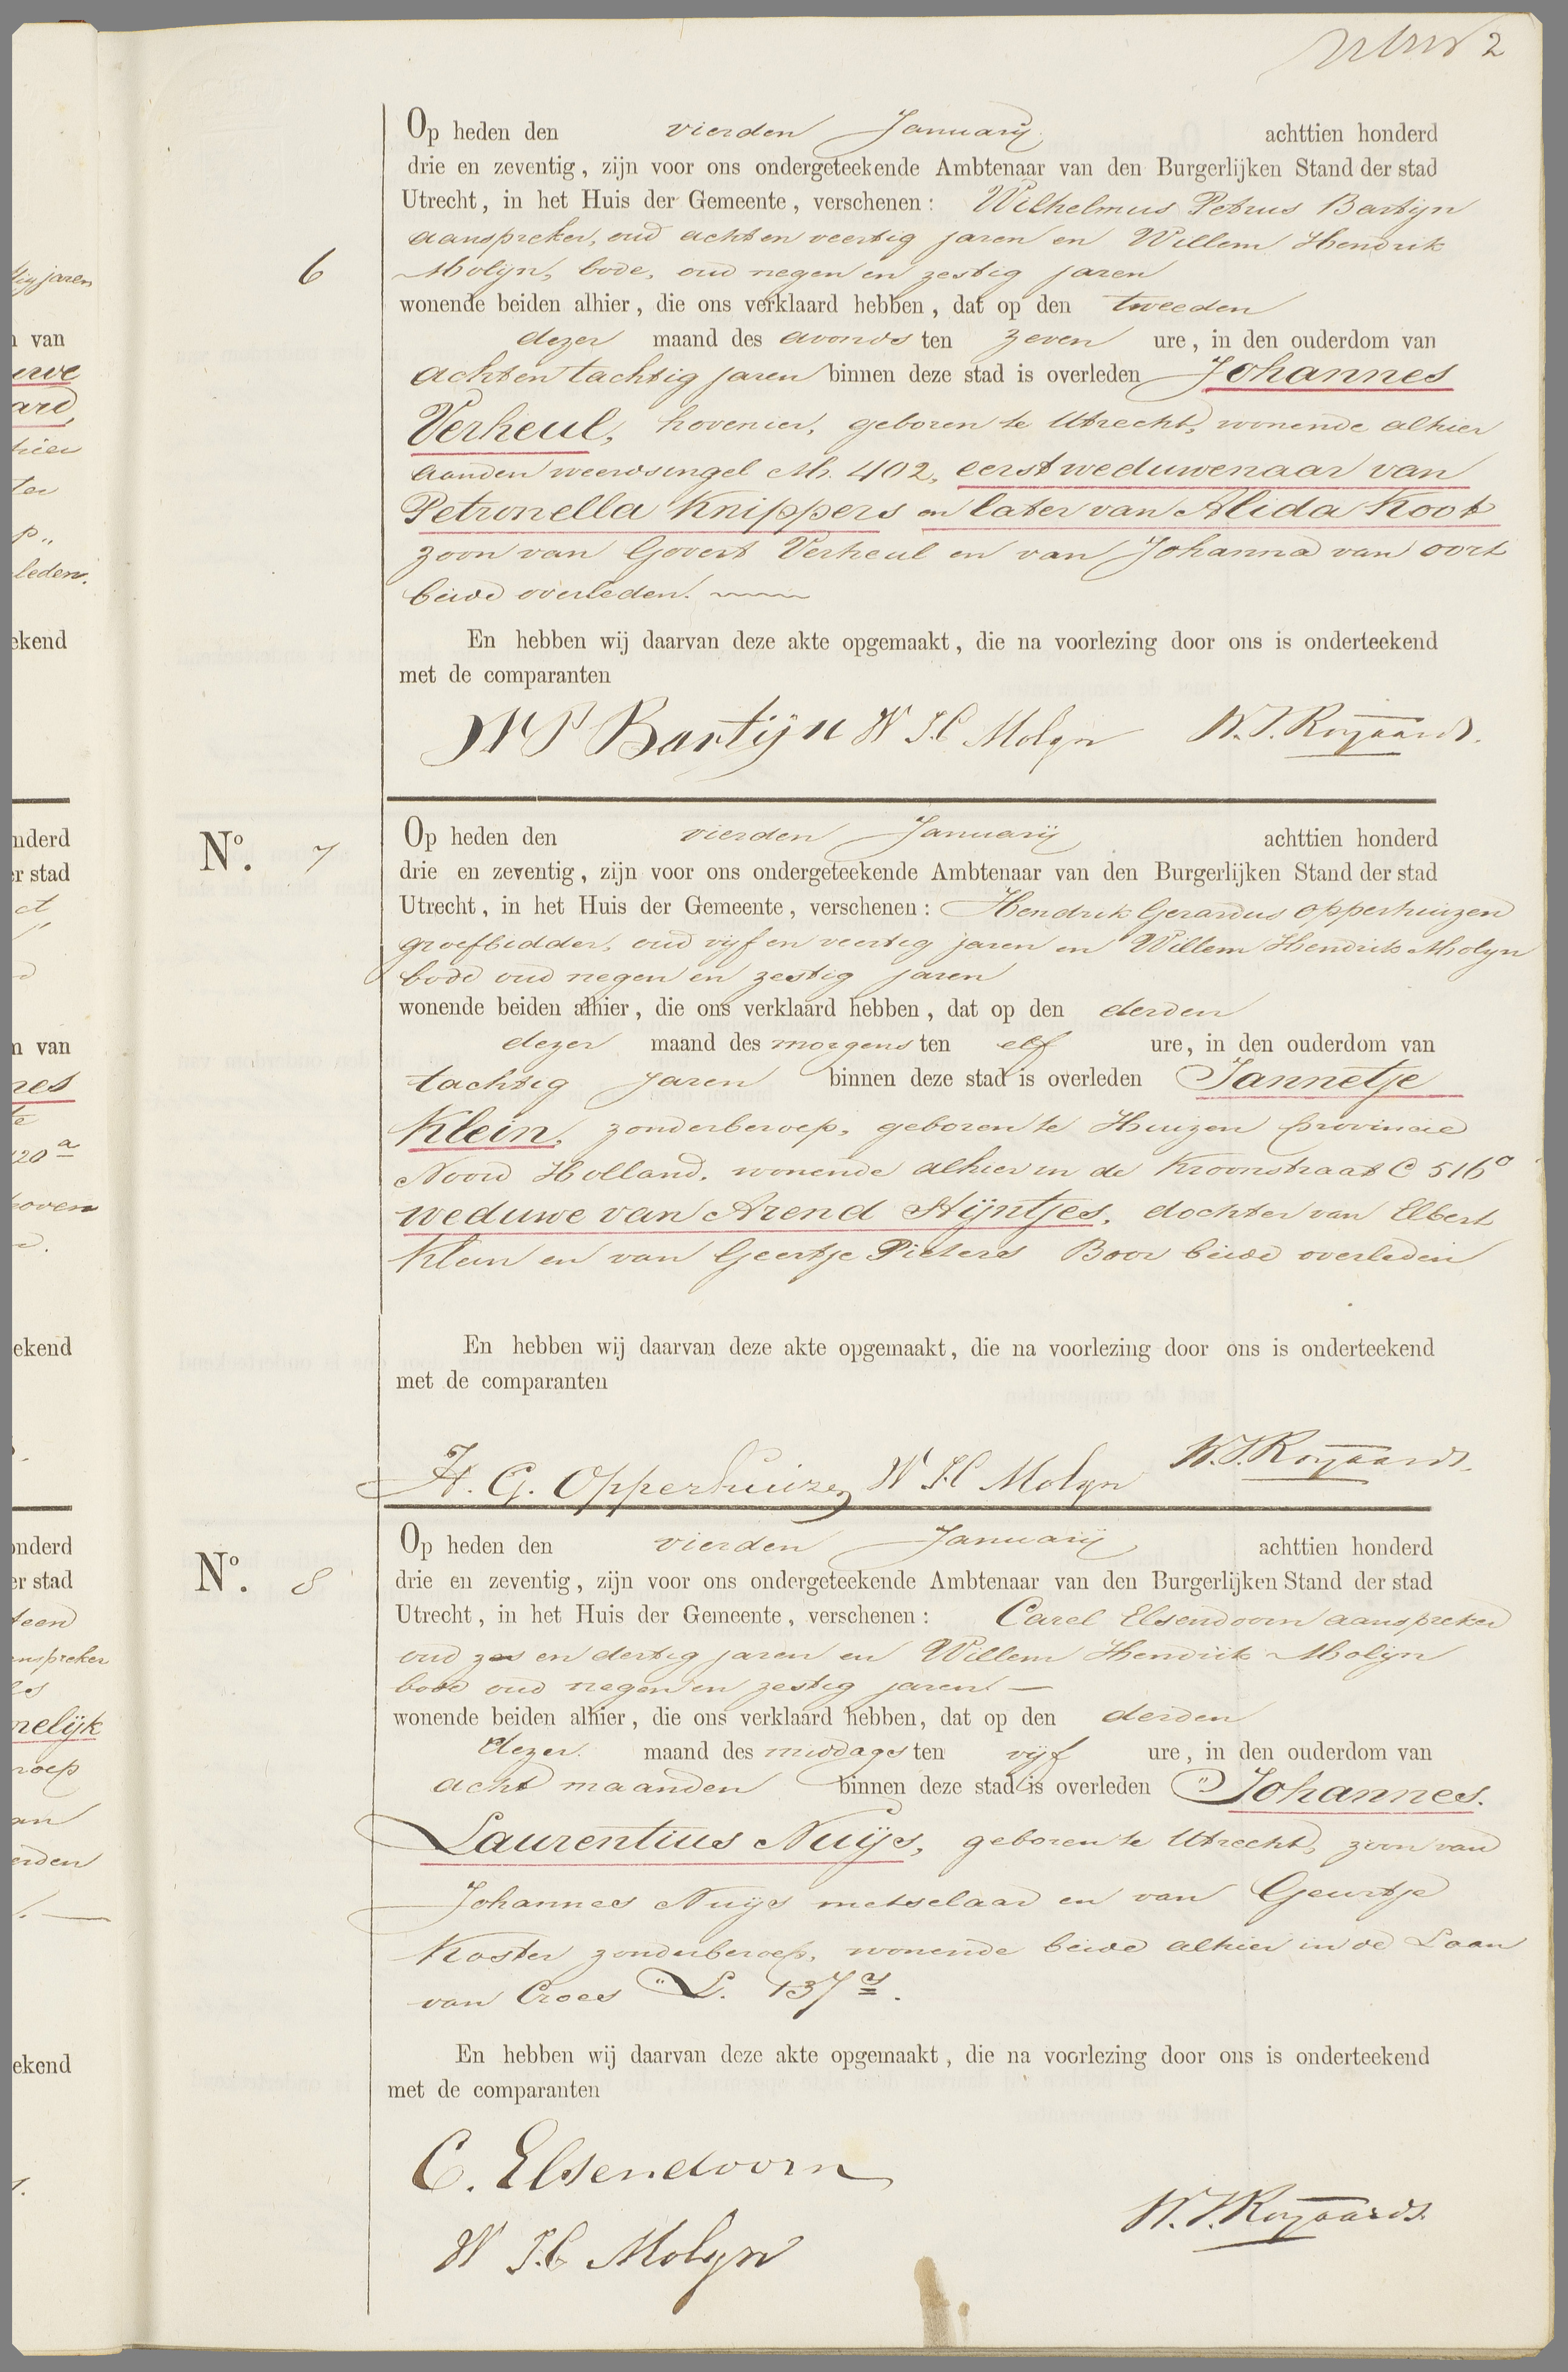 2
Op heden den vierden Januarij achttien honderd
drie en zeventig, zijn voor ons ondergeteekende Ambtenaar van den Burgerlijken Stand der stad
Utrecht, in het Huis der Gemeente, verschenen: Wilhelmus Petrus Bartijn
aanspreker, oud acht en veertig jaren en Willem Hendrik
6 Molijn, bode, oud negen en zestig jaren
wonende beiden alhier, die ons verklaard hebben, dat op den tweeden
dezer maand des avonds ten zeven ure, in den ouderdom van
acht en tachtig jaren binnen deze stad is overleden Johannes
Verheul, hovenier, geboren te Utrecht, wonende alhier
aan den weerdsingel M. 402, eerst weduwenaar van
Petronella Knippers en later van Alida Koot
zoon van Govert Verheul en van Johanna van oort
beide overleden.
En hebben wij daarvan deze akte opgemaakt, die na voorlezing door ons is onderteekend
met de comparanten
W P Bartijn W H Molyn W. J. Royaards.
No. 7 Op heden den vierden Januarij achttien honderd
drie en zeventig, zijn voor ons ondergeteekende Ambtenaar van den Burgerlijken Stand der stad
Utrecht, in het Huis der Gemeente, verschenen: Hendrik Gerardus Opperhuizen
groefbidder, oud vijf en veertig jaren en Willem Hendrik Molyn
bode oud negen en zestig jaren
wonende beiden alhier, die ons verklaard hebben, dat op den derden
dezer maand des morgens ten elf ure, in den ouderdom van
tachtig jaren binnen deze stad is overleden Jannetje
Klein, zonder beroep, geboren te Huizen provincie
Noord Holland, wonende alhier in de Kroonstraat C 516a
weduwe van Arend Stijntjes, dochter van Elbert
Klein en van Geertje Pieters Boor beide overleden
En hebben wij daarvan deze akte opgemaakt, die na voorlezing door ons is onderteekend
met de comparanten
H. G. Opperhuizen W H Molyn W. J. Royaards.
No. 8 Op heden den vierden Januarij achttien honderd
drie en zeventig, zijn voor ons ondergeteekende Ambtenaar van den Burgerlijken Stand der stad
Utrecht, in het Huis der Gemeente, verschenen: Carel Elsendoorn aanspreker
oud zes en dertig jaren en Willem Hendrik Molijn
bode oud negen en zestig jaren. —
wonende beiden alhier, die ons verklaard hebben, dat op den derden
dezer. maand des middags ten vijf ure, in den ouderdom van
acht maanden binnen deze stad is overleden Johannes.
Laurentius Nuijs, geboren te Utrecht, zoon van
Johannes Nuijs metselaar en van Geurtje
Koster zonder beroep, wonende beide alhier in de Laan
van Croes L. 137s.
En hebben wij daarvan deze akte opgemaakt, die na voorlezing door ons is onderteekend
met de comparanten
C. Elsendoorn
W H Molyn W. J. Royaards.